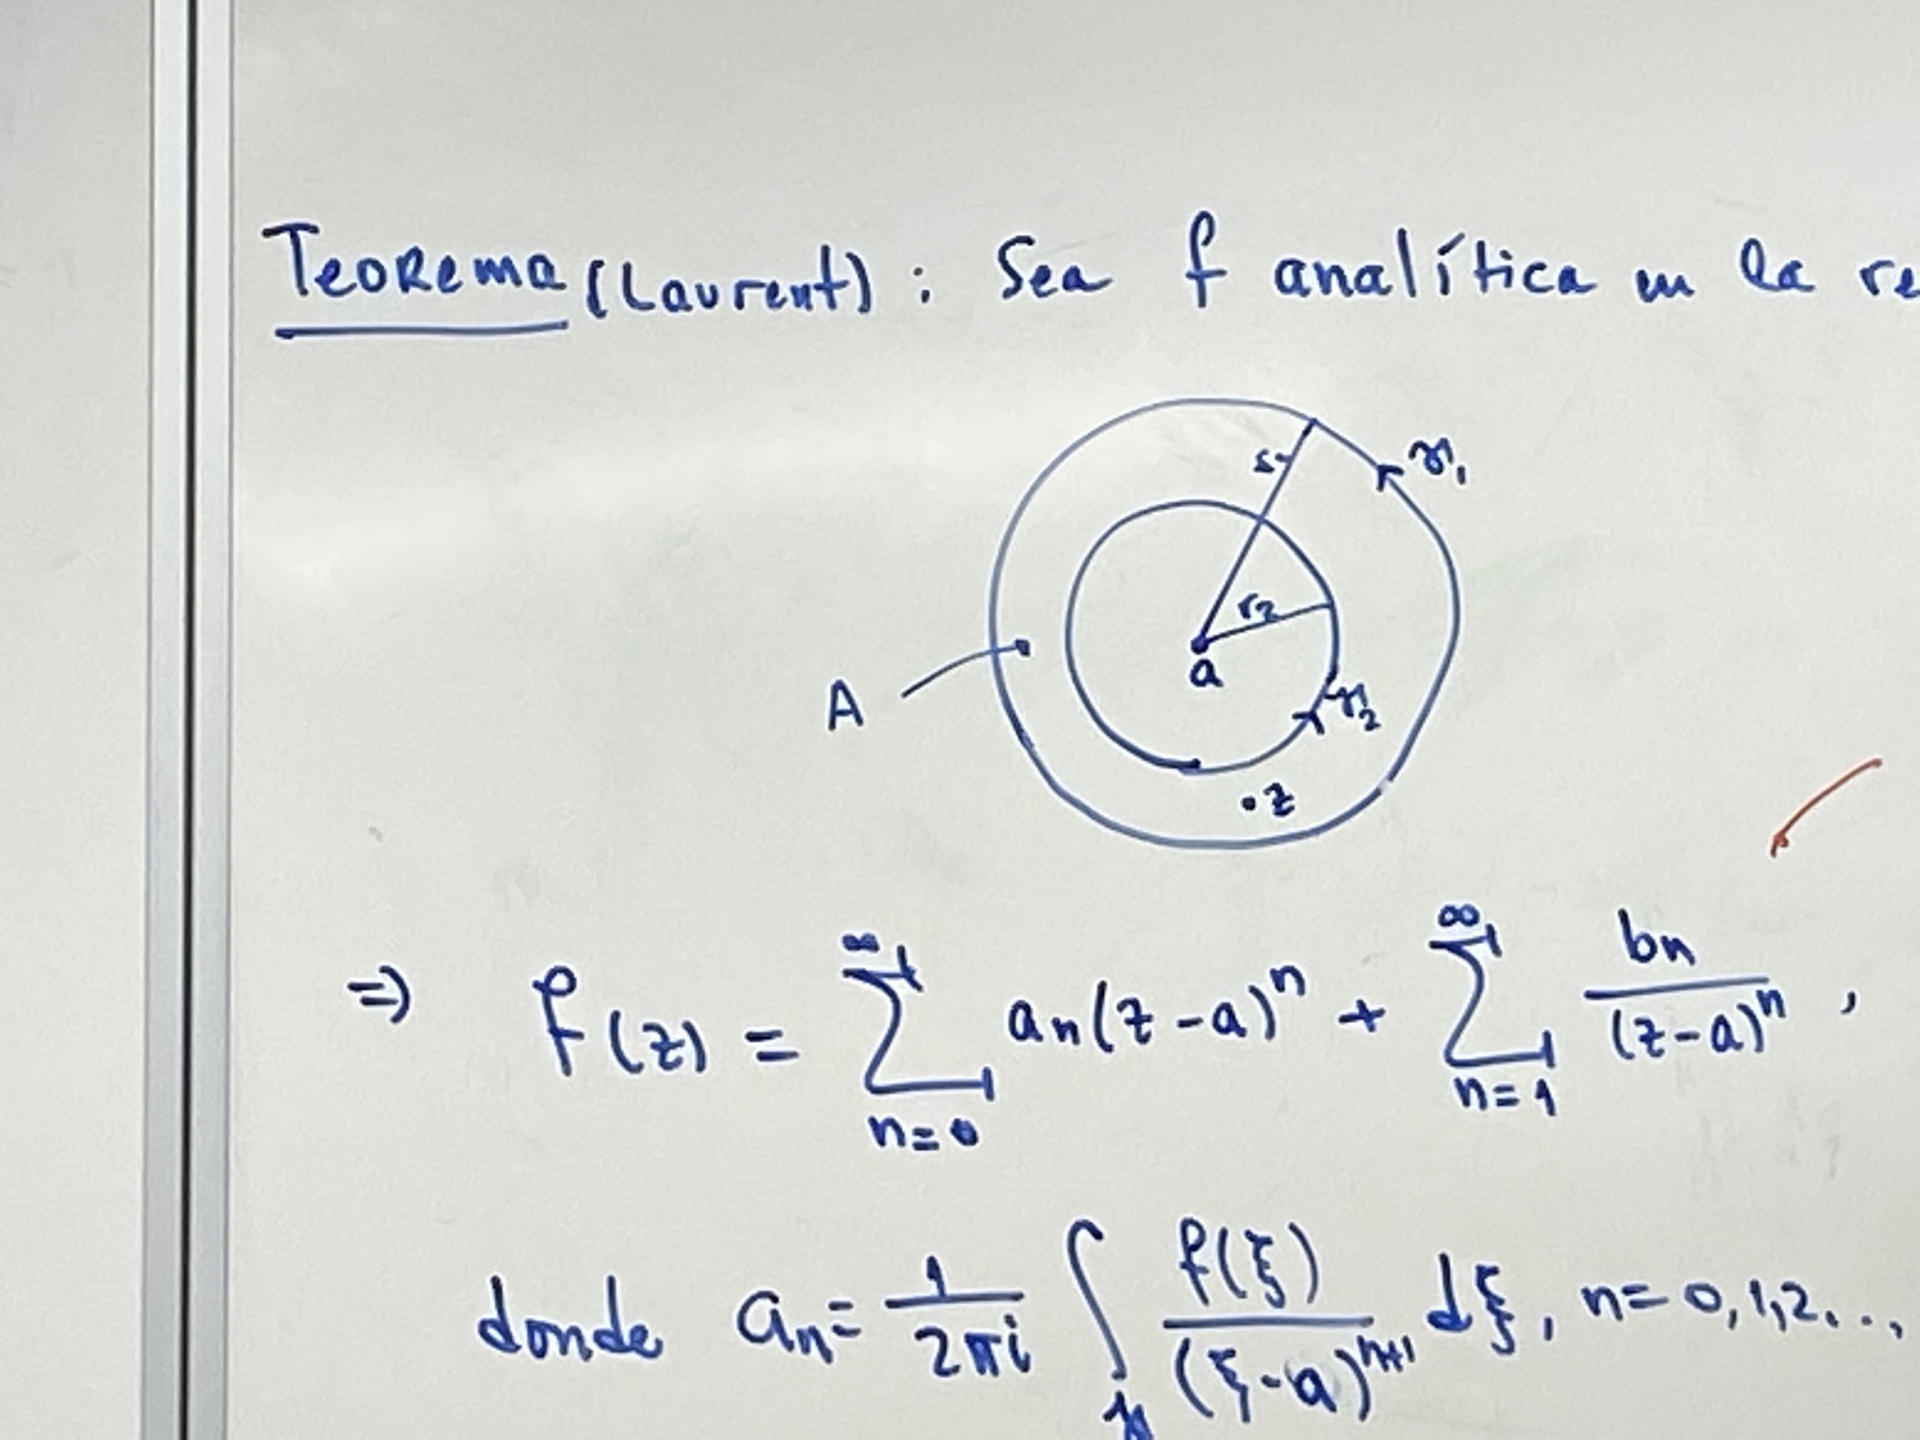 Teorema (Laurent): Sea f analítica en la re
r₁ γ₁
r₂
a
A γ₂
z
⇒ f(z) = ∑_{n=0}^{∞} aₙ(z-a)ⁿ + ∑_{n=1}^{∞} bₙ/(z-a)ⁿ,
donde aₙ = 1/2πi ∫_{γ₁} f(ξ)/(ξ-a)ⁿ⁺¹ dξ, n=0,1,2...,